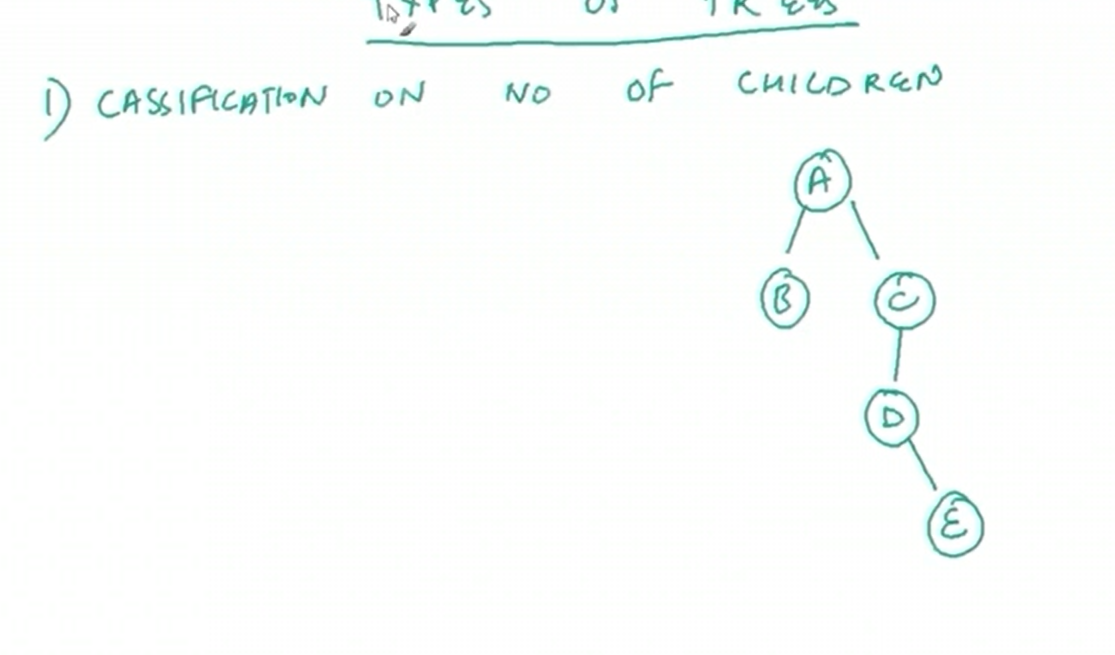 OF TREES
1) CASSIFICATION ON NO OF CHILDREN
A
B C
D
E